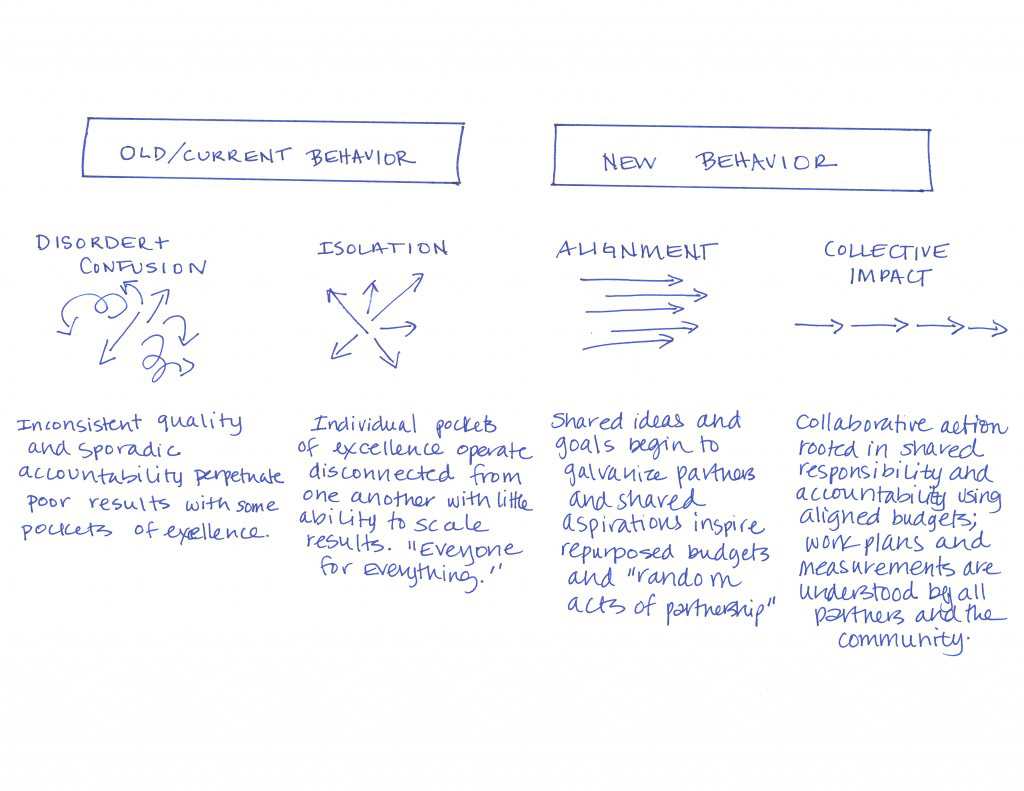 OLD/CURRENT BEHAVIOR
NEW BEHAVIOR
DISORDER +
CONFUSION
Inconsistent quality
and sporadic
accountability perpetuate
poor results with some
pockets of exellence.
ISOLATION
Individual pockets
of excellence operate
disconnected from
one another with little
ability to scale
results. "Everyone
for everything."
ALIGNMENT
Shared ideas and
goals begin to
galvanize partners
and shared
aspirations inspire
repurposed budgets
and "random
acts of partnership"
COLLECTIVE
IMPACT
Collaborative action
rooted in shared
responsibility and
accountability using
aligned budgets;
work plans and
measurements are
understood by all
partners and the
community.